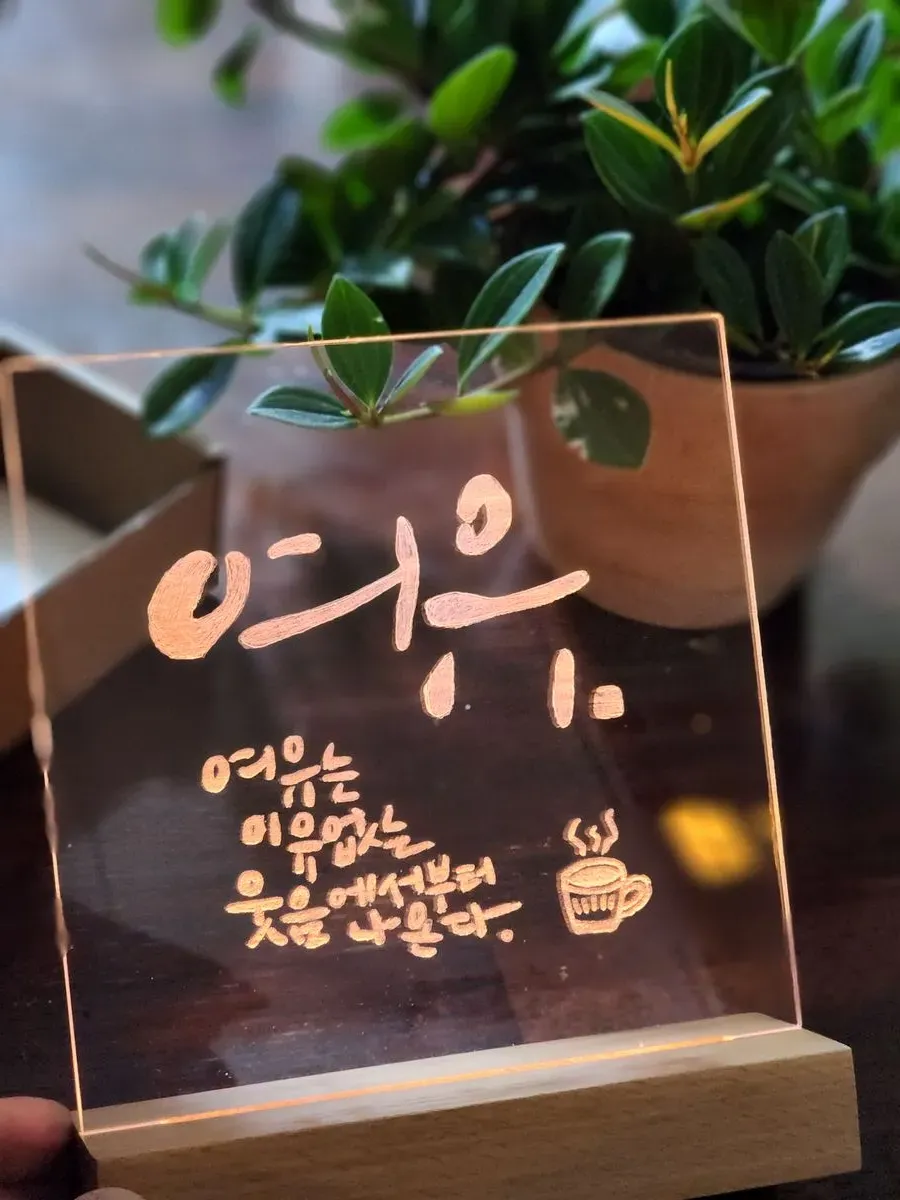 여유.
여유는
이유없는
웃음에서부터
나온다.